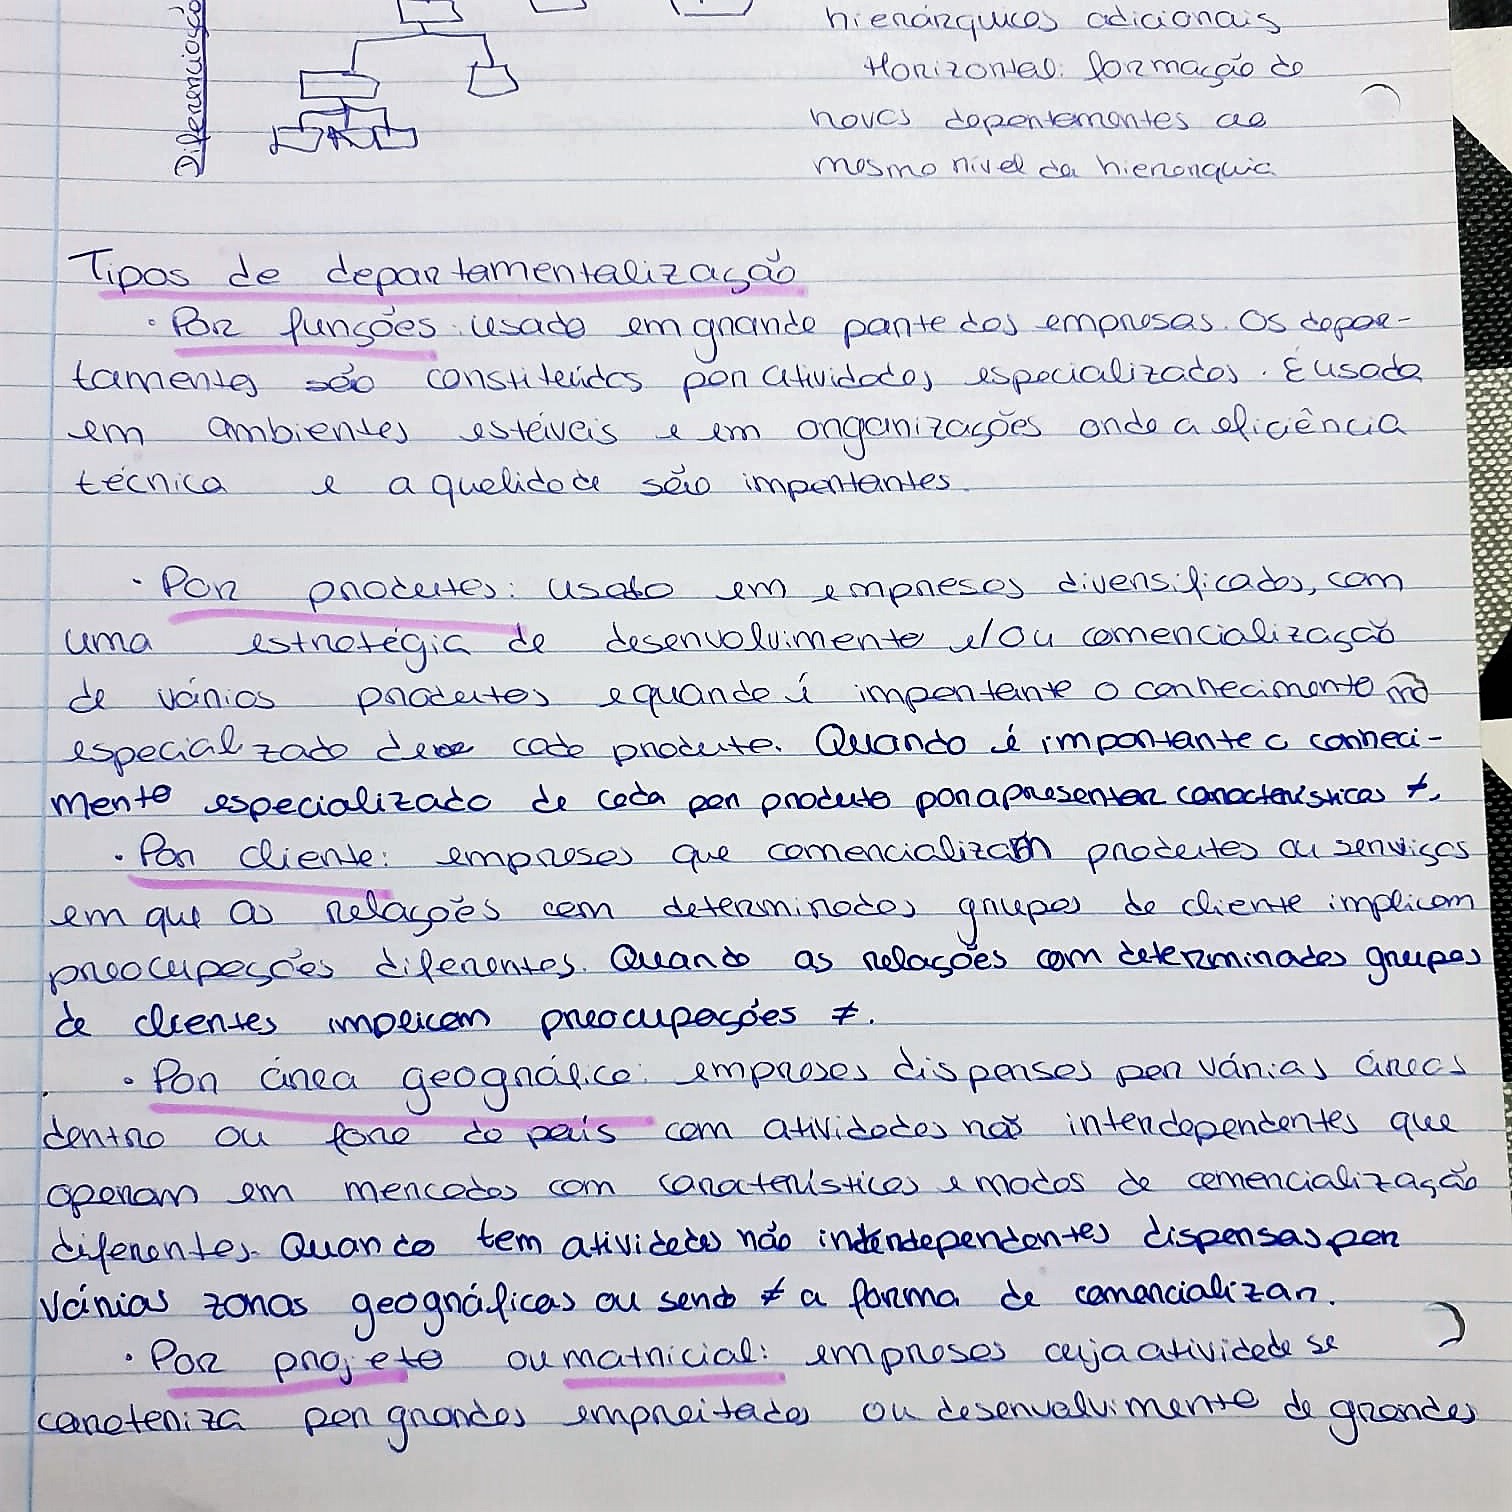 Diferenciação
hierárquicos adicionais
Horizontal: formação de
novos departamentos ao
mesmo nível da hierarquia
Tipos de departamentalização
· Por funções: usado em grande parte das empresas. Os depar-
tamentos são constituídos por atividades especializadas. É usada
em ambientes estáveis e em organizações onde a eficiência
técnica e a qualidade são importantes.
· Por produtos: usado em empresas diversificadas, com
uma estratégia de desenvolvimento e/ou comercialização
de vários produtos e quando é importante o conhecimento
especializado de cada produto. Quando é importante o conheci-
mento especializado de cada por produto por apresentar características ≠.
· Por cliente: empresas que comercializam produtos ou serviços
em que as relações com determinados grupos de cliente implicam
preocupações diferentes. Quando as relações com determinados grupos
de clientes implicam preocupações ≠.
· Por área geográfica: empresas dispersas por várias áreas
dentro ou fora do país com atividades não interdependentes que
operam em mercados com características e modos de comercialização
diferentes. Quando tem atividades não interdependentes dispersas por
várias zonas geográficas ou sendo ≠ a forma de comercializar.
· Por projeto ou matricial: empresas cuja atividade se
carateriza por grandes empreitadas ou desenvolvimento de grandes